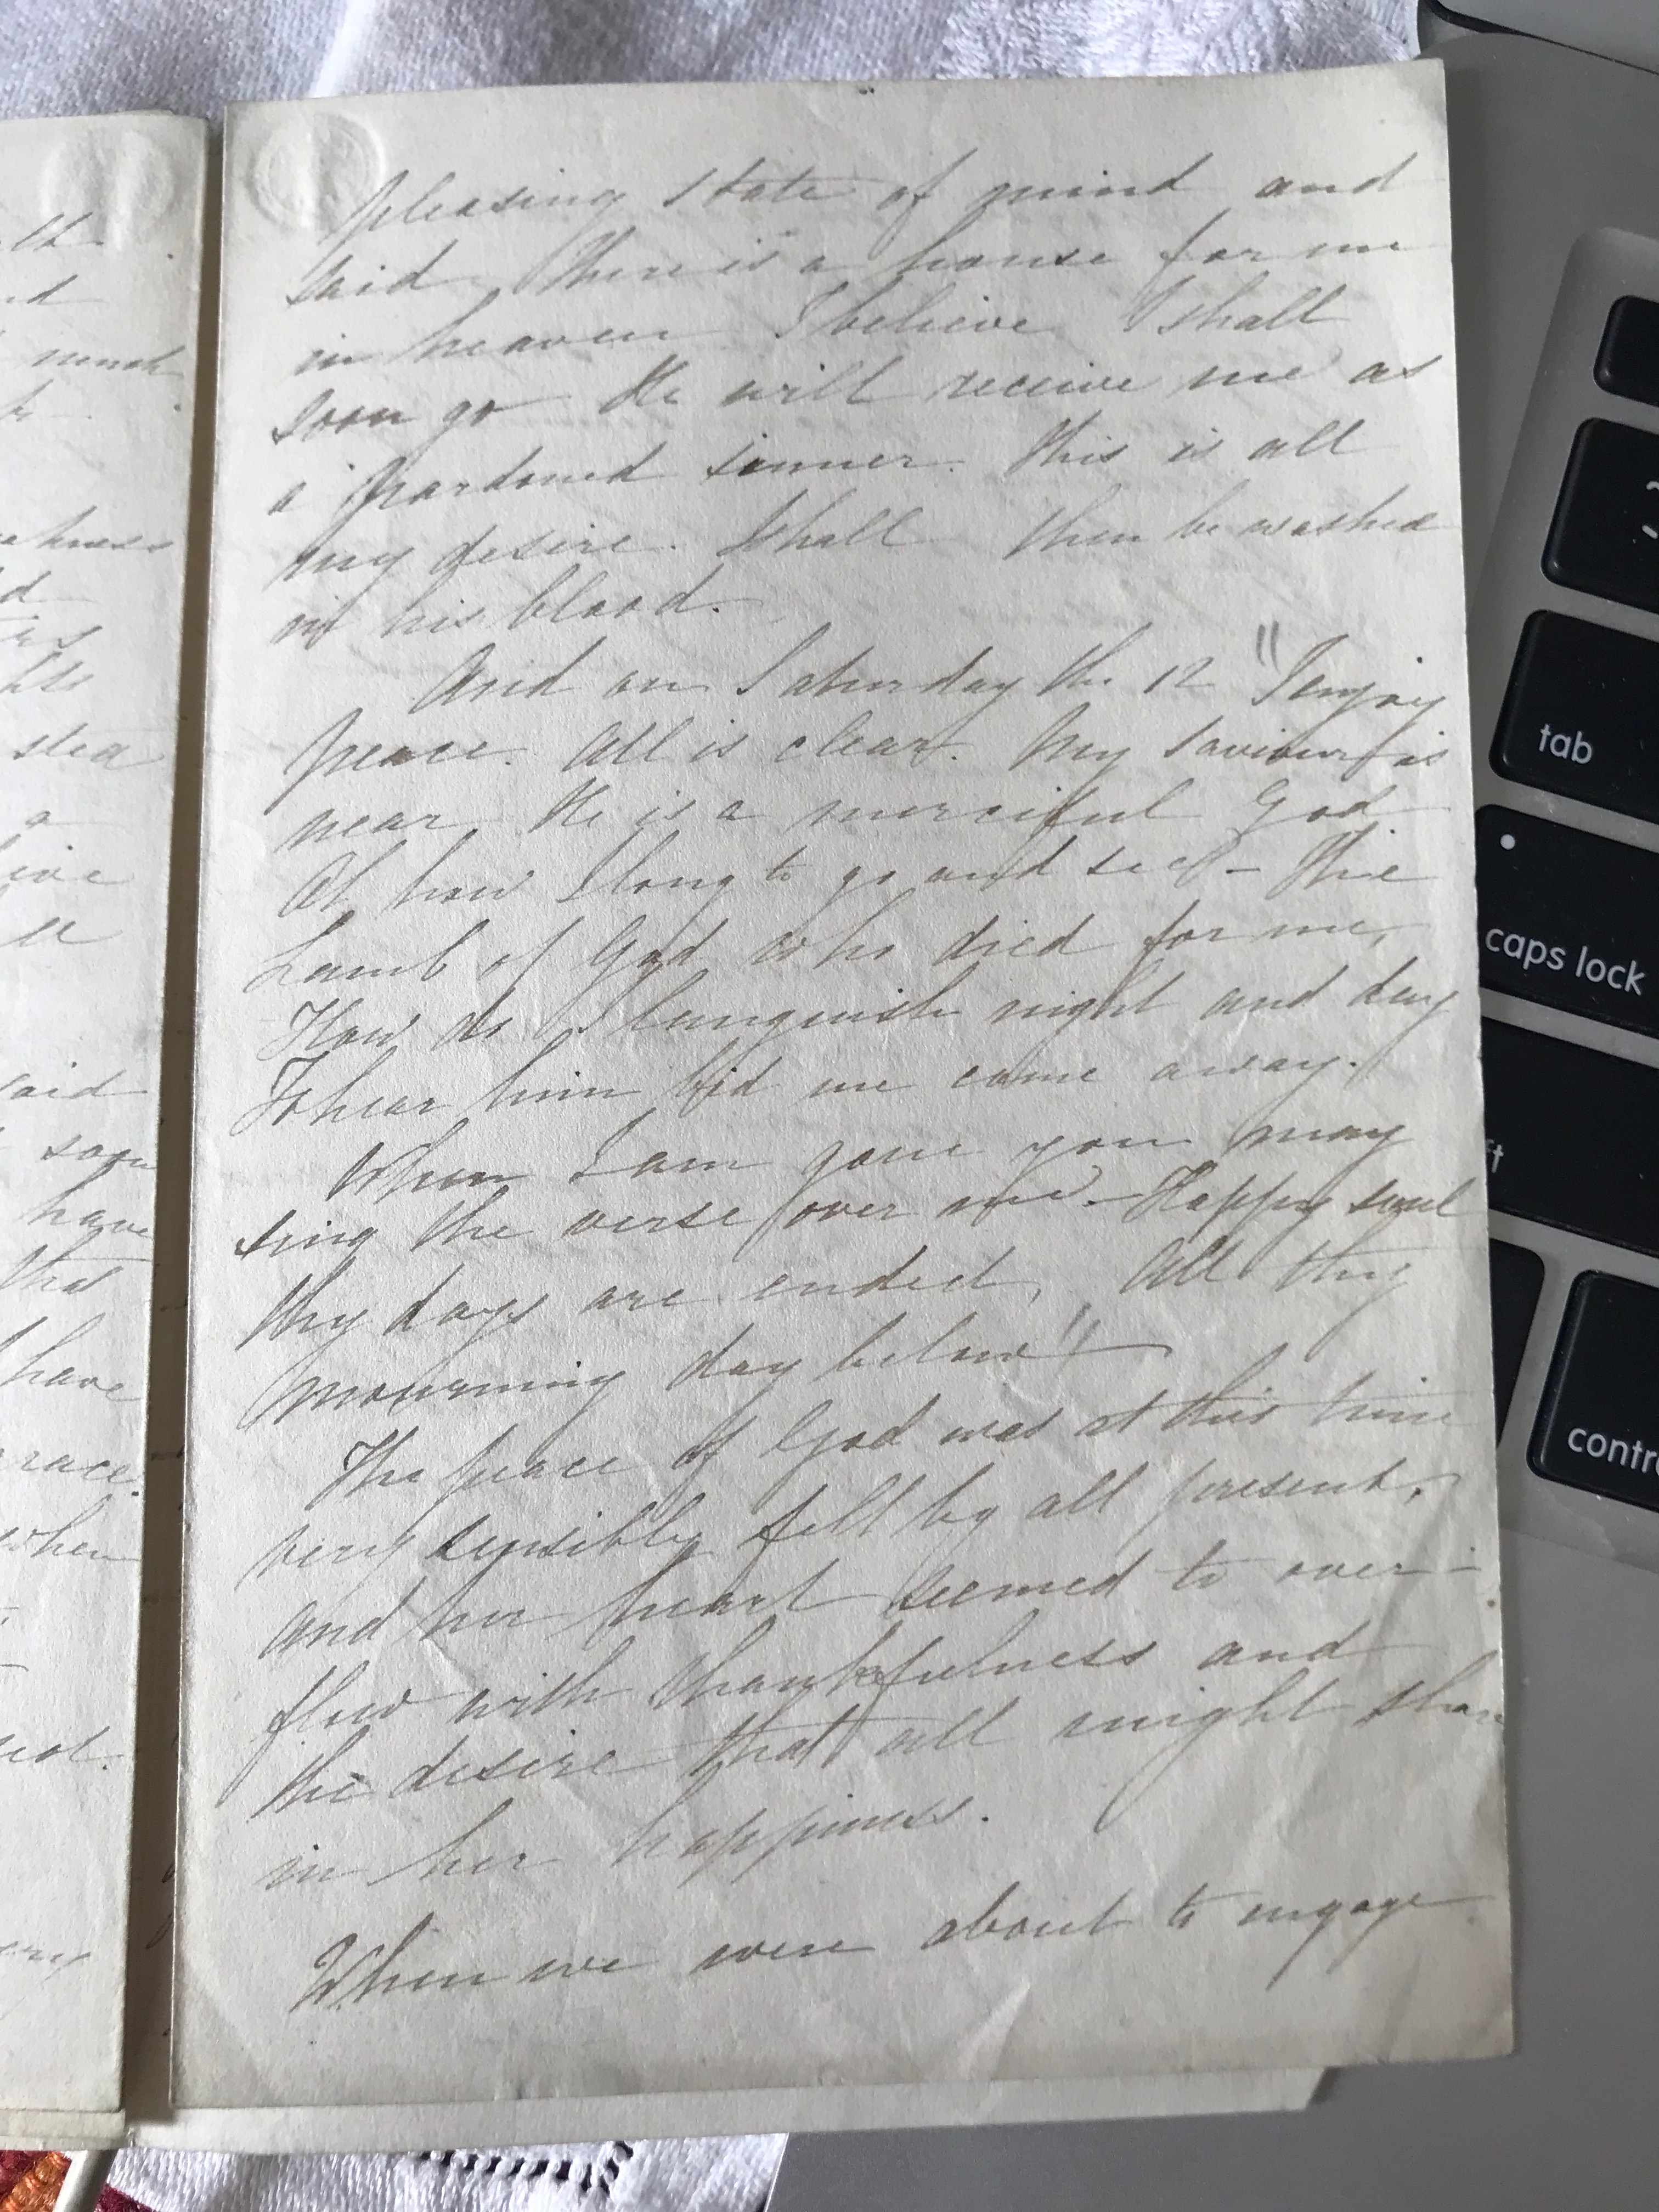 pleasing state of mind and
said there is a house for me
in heaven I believe I shall
soon go He will receive me as
a pardoned sinner. This is all
my desire. Shall then be washed
in his blood.
And on Saturday the 12 "I enjoy
peace. All is clear. My Saviour is
near He is a merciful God
Oh how I long to go and see - the
Lamb of God who died for me,
How do I languish night and day
To hear him bid me come away.
When I am gone you may
sing the verse over me - Happy soul
thy days are ended, All thy
mourning day below"
The peace of God was at this time
very sensibly fell by all present,
and her heart seemed to over-
flow with thankfulness and
the desire that all might share
in her happiness.
When we were about to engage
nd
much
stea
a
ive
said
soon
have
that
have
race.
when
tab
caps lock
contro